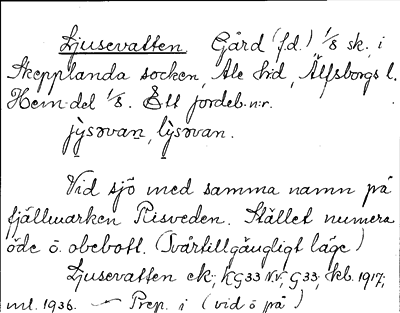 Ljusevatten Gård (f.d.) 1/8 sk. i
Skepplanda socken, Ale hd, Älfsborgs l.
Hem. del 1/8. Ett jordeb. n:r.
jy̱səvaṉ, ly̱səvan.
Vid sjö med samma namn på
fjällmarken Risveden. Stället numera
öde o. obebott. (Svårtillgängligt läge)
Ljusevatten ek, KG33 N.V., G33, kb. 1917,
ml. 1936. — Prep. i (vid o på)